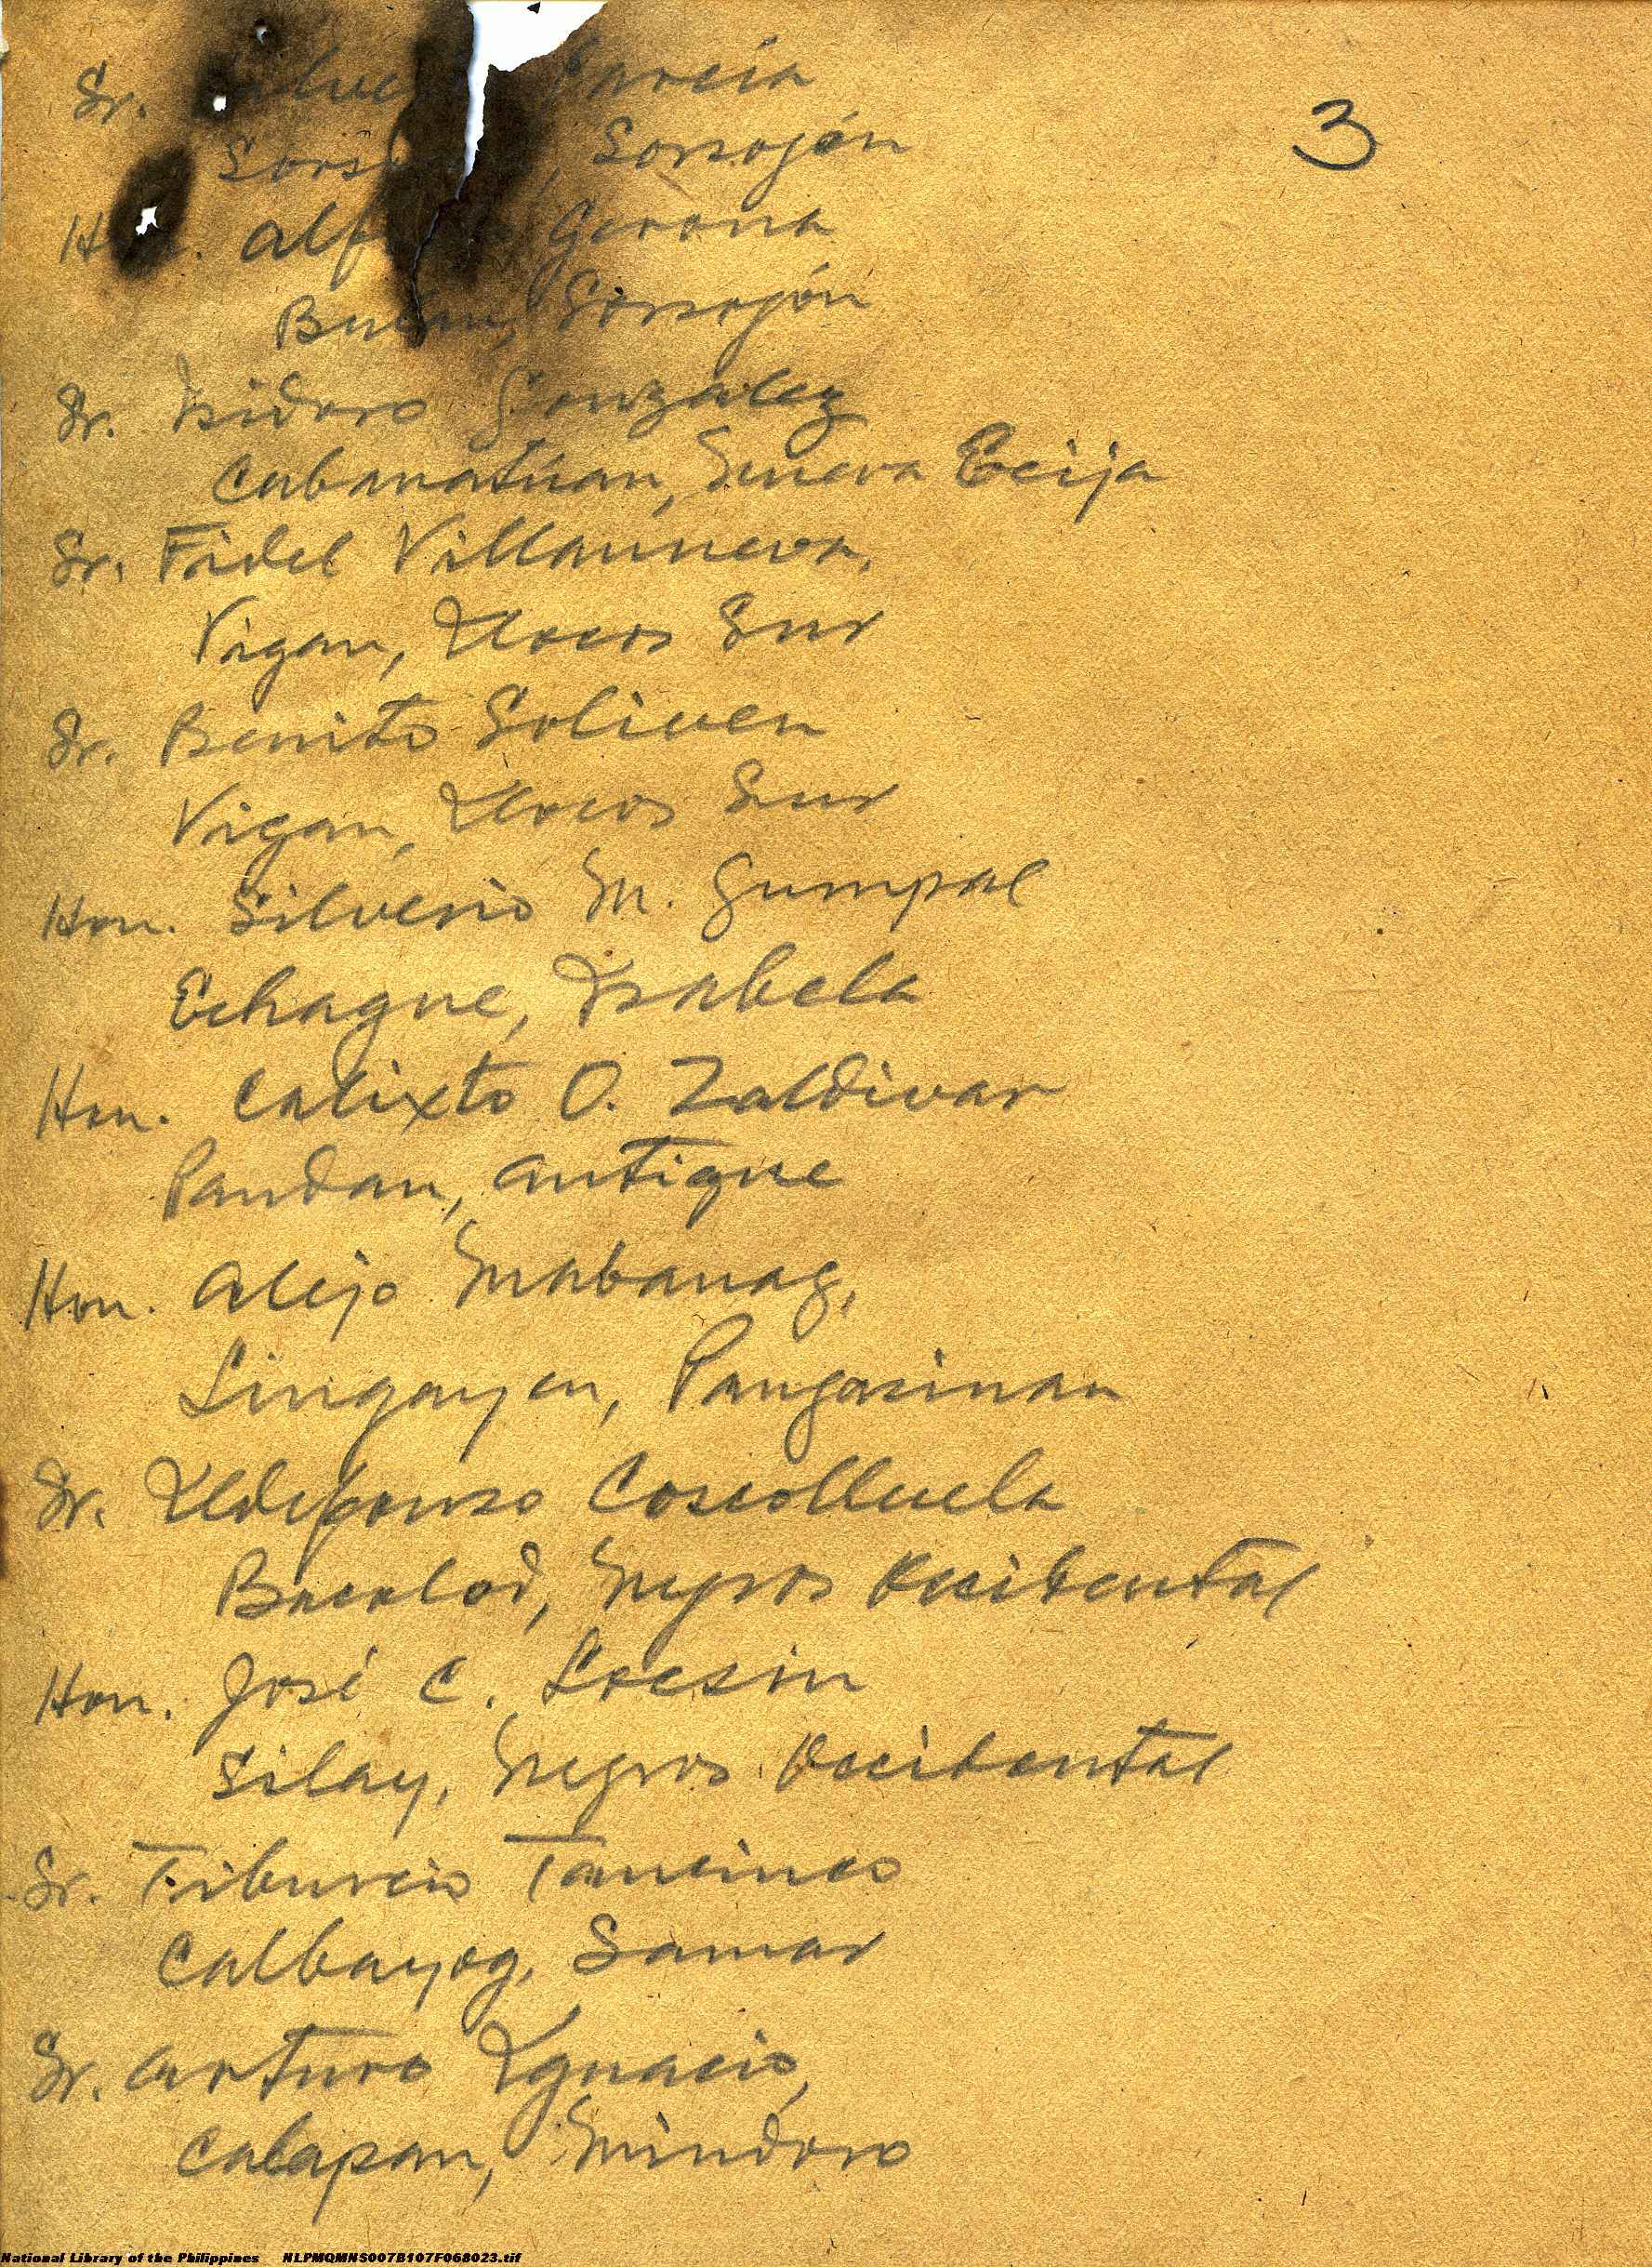 Sr. García
3
Sorsogón
Hon. Gerona
Bulan, Sorsogón
Sr. Isidoro Gonzalez
Cabanatúan, Nueva Ecija
Sr. Fidel Villanueva,
Vigan, Ilocos Sur
Sr. Benito Soliven
Vigan, Ilocos Sur
Hon. Silverio M. Gumpal
Echague, Isabela
Hon. Calixto O. Zaldivar
Pandan, Antique
Hon. Alejo Mabanag,
Lingayen, Pangasinan
Sr. Ildefonso Coscolluela
Bacolod, Negros Occidental
Hon. José C. Locsin
Silay, Negros Occidental
Sr. Tiburcio Tancinco
Calbayog, Samar
Sr. Arturo Ignacio,
Calapan, Mindoro
National Library of the Philippines NLPMQMNS007B107F068023.tif